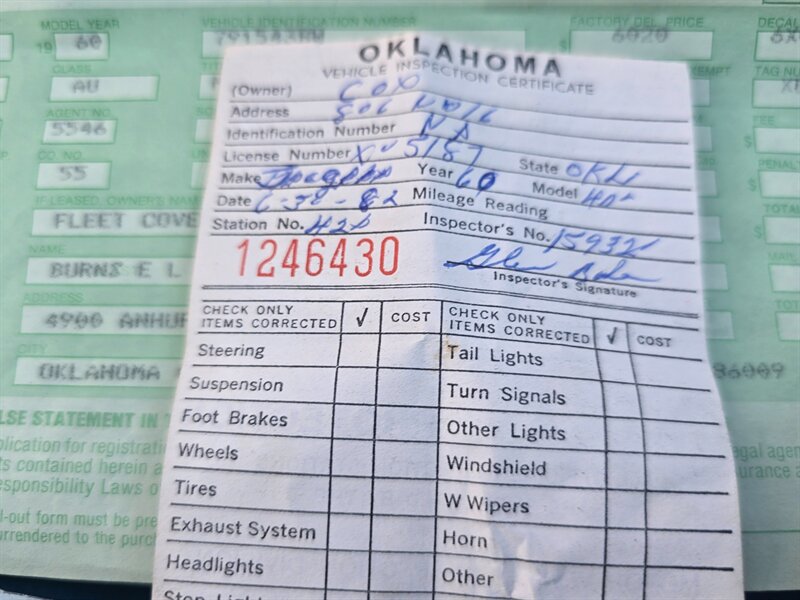 MODEL YEAR
VEHICLE IDENTIFICATION NUMBER
FACTORY DEL. PRICE
DECAL
19 60
$ 6020
CLASS
AU
TAG NU
AGENT NO
5546
FEE
CO. NO.
55
PENALT
IF LEASED, OWNER'S NA
FLEET COVE
TOTAL
NAME
BURNS E L
MAIL
ADDRESS
4900
TOT
CITY
OKLAHOMA
86009
LSE STATEMENT IN
plication for registrati
ts contained herein a
sponsibility Laws o
l-out form must be pre
urrendered to the purch
egal agen
surance a
OKLAHOMA
VEHICLE INSPECTION CERTIFICATE
(Owner) COX
Address 806
Identification Number NA
License Number XU 5187 State OKL
Make Year 60 Model
Date 6-30-82 Mileage Reading
Station No. Inspector's No. 15932
1246430
Inspector's Signature
CHECK ONLY ITEMS CORRECTED √ COST CHECK ONLY ITEMS CORRECTED √ COST
Steering Tail Lights
Suspension Turn Signals
Foot Brakes Other Lights
Wheels Windshield
Tires W Wipers
Exhaust System Horn
Headlights Other